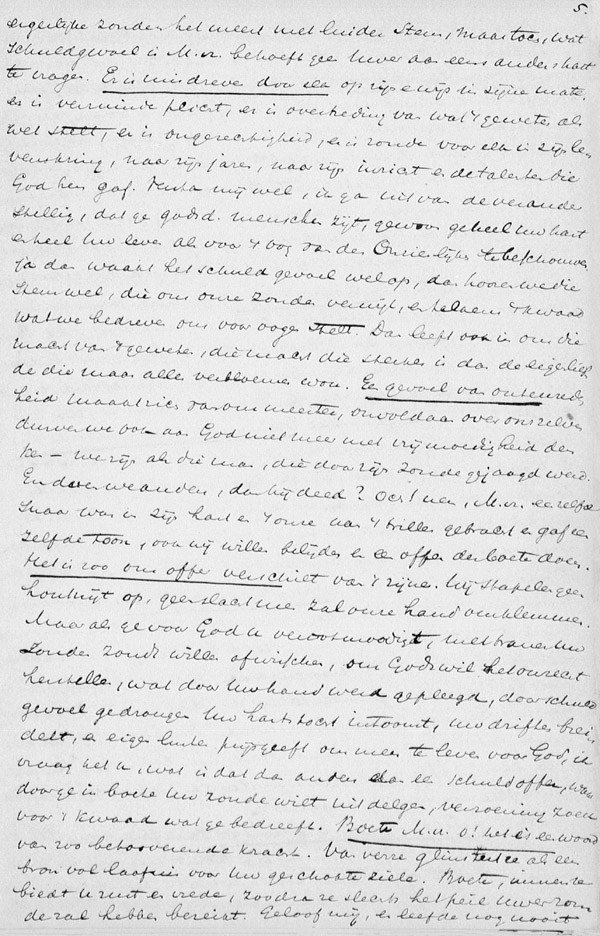 5.
eigenlijke zonden het meest met luider Stem, maar toch, wat
schuldgevoel is M.vr. behoeft geen Uwer aan eens anders hart
te vragen. Er is misdreven door elk op zijn wijs in zijne mate,
er is verminde plicht, er is overtreding van wat 't geweten als
wet stelt, er is ongerechtigheid, er is zonde voor elk in zijn le
venskring, naar zijn jaren, naar zijn inzicht en de talenten die
God hem gaf. Versta mij wel, ik ga uit van de veronder
stelling, dat ge godsd. menschen zijt, gewoon geheel Uw hart
en heel Uw leven als voor 't oog van den Onzienlijke te beschouwen,
ja dan waakt het schuldgevoel wel op, dan hooren we die
Stem wel, die ons onze zonden verwijt, en telkens 't kwaad
wat we bedreven ons voor oogen stelt. Dan leeft ook in ons die
macht van 't geweten, die macht die sterker is dan de eigenlief
de die maar alles verbloemen wou. Een gevoel van ontevreden
heid maakt zich van ons meester, onvoldaan over ons zelven
durven we ook aan God niet meer met vrijmoedigheid den
ken – we zijn als die man, die door zijn zonde gejaagd werd.
En doen we anders, dan hij deed? Och! neen, M.vr. eezelfde
Snaar was in zijn hart en 't onze aan 't trillen gebracht en gaf een
zelfde toon, ook wij willen belijden en een offer der boete doen.
Het is zoo ons offer verschilt van 't zijne. Wij stapelen geen
hout op, geen slachtmes zal onze hand omklemmen.
Maar als ge voor God U verootmoedigt, met tranen Uw
Zonden zoudt willen afwisschen, om Gods wil het onrecht
herstellen, wat door Uw hand werd gepleegd, door schuld
gevoel gedrongen Uw hartstocht intoomt, Uw driften brei
delt, en eigen lusten prijsgeeft om meer te leven voor God, ik
vraag het U, wat is dat dan anders dan een schuldoffer, waar
door ge in boete Uw zonde wilt uitdelgen, verzoening zoeken
voor 't kwaad wat ge bedreeft. Boete M.vr. o! het is een woord
van zoo betooverende kracht. Van verre glinstert ze als een
bron vol laafnis voor Uw geschokte ziele. Boete, immers ze
biedt U rust en vrede, zoodra ze slechts het heil Uwer zon
de zal hebben bereikt. Geloof mij, er leefde nog nooit